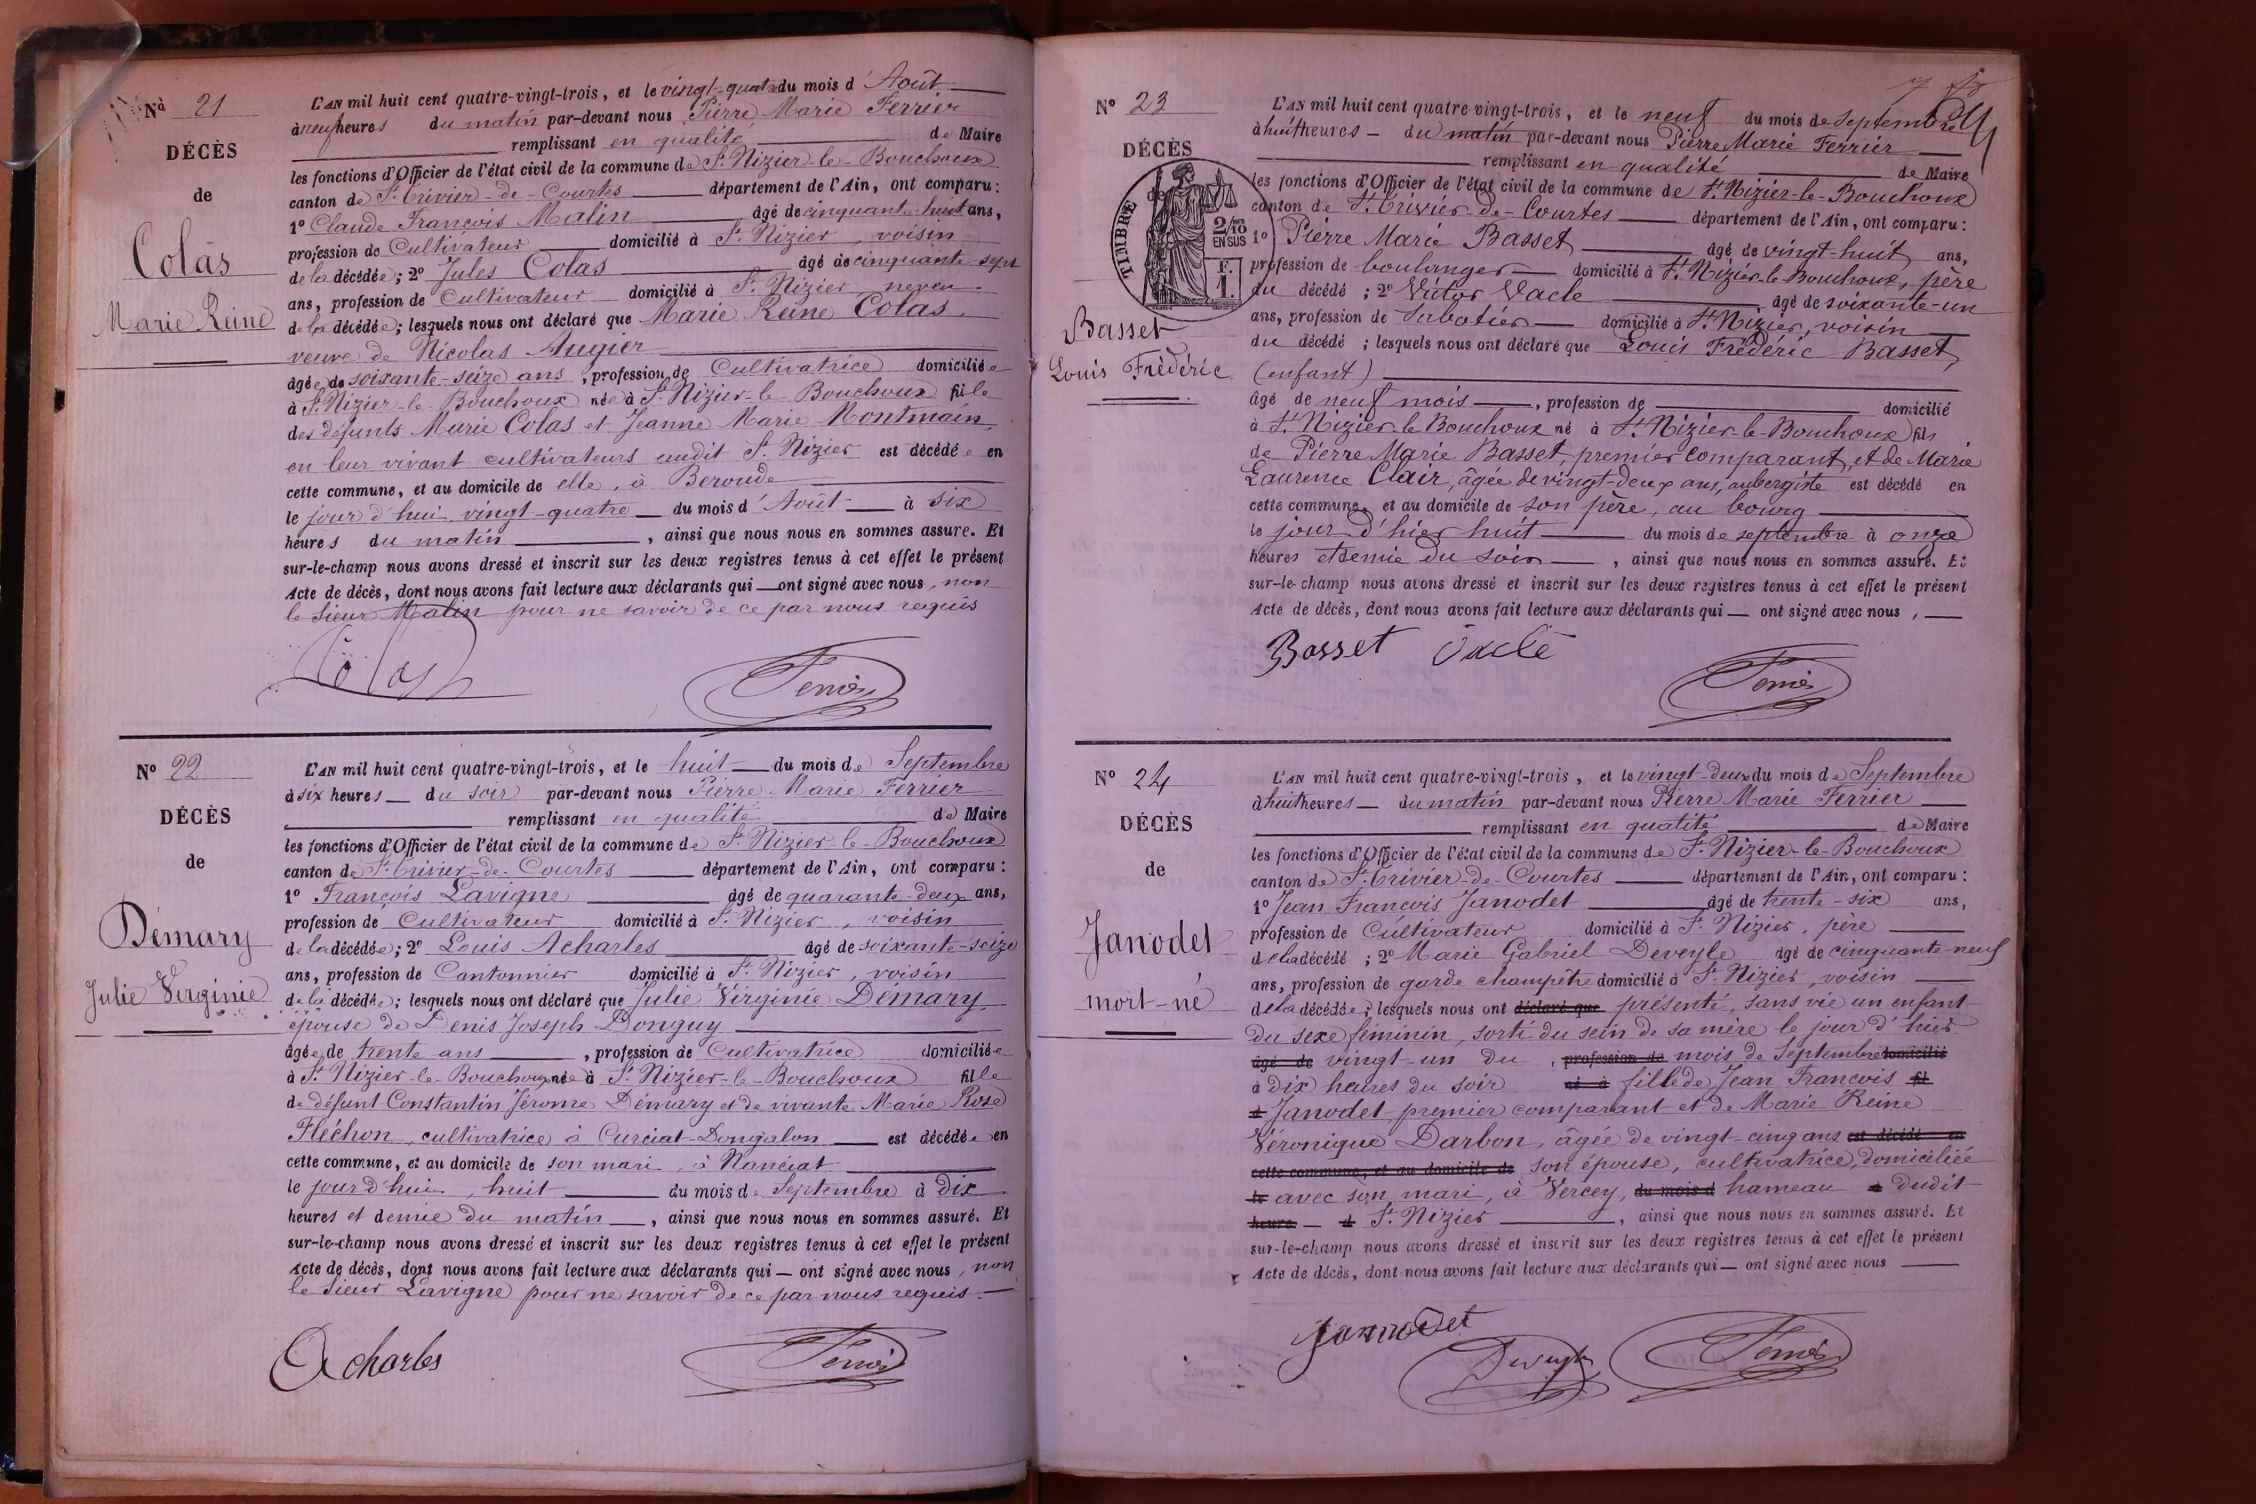 Nº 21
DÉCÈS
de
Colas
Marie Reine
L'AN mil huit cent quatre-vingt-trois, et le vingt-quatre du mois d'Août
à neuf heures du matin par-devant nous Pierre Marie Ferrier
remplissant en qualité de Maire
les fonctions d'Officier de l'état civil de la commune de St Nizier-le-Bouchoux
canton de St Trivier-de-Courtes département de l'Ain, ont comparu :
1º Claude François Malin âgé de cinquante-huit ans,
profession de Cultivateur domicilié à St Nizier, voisin
de la décédée; 2º Jules Colas âgé de cinquante-sept
ans, profession de Cultivateur domicilié à St Nizier, neveu
de la décédée; lesquels nous ont déclaré que Marie Reine Colas,
veuve de Nicolas Augier
âgée de soixante-seize ans, profession de Cultivatrice domiciliée
à St Nizier-le-Bouchoux née à St Nizier-le-Bouchoux fille
des défunts Marie Colas et Jeanne Marie Montmain,
en leur vivant cultivateurs audit St Nizier est décédée en
cette commune, et au domicile de elle, à Beroude
le jour d'hui vingt-quatre du mois d'Août à six
heures du matin, ainsi que nous nous en sommes assuré. Et
sur-le-champ nous avons dressé et inscrit sur les deux registres tenus à cet effet le présent
Acte de décès, dont nous avons fait lecture aux déclarants qui — ont signé avec nous, non
le sieur Malin pour ne savoir de ce par nous requis
Colas Ferrier
Nº 22
DÉCÈS
de
Démary
Julie Virginie
L'AN mil huit cent quatre-vingt-trois, et le huit du mois de Septembre
à six heures du soir par-devant nous Pierre Marie Ferrier
remplissant en qualité de Maire
les fonctions d'Officier de l'état civil de la commune de St Nizier-le-Bouchoux
canton de St Trivier-de-Courtes département de l'Ain, ont comparu :
1º François Lavigne âgé de quarante-deux ans,
profession de Cultivateur domicilié à St Nizier, voisin
de la décédée; 2º Louis Acharles âgé de soixante-seize
ans, profession de Cantonnier domicilié à St Nizier, voisin
de la décédée; lesquels nous ont déclaré que Julie Virginie Démary,
épouse de Denis Joseph Donguy
âgée de trente ans, profession de Cultivatrice domiciliée
à St Nizier-le-Bouchoux née à St Nizier-le-Bouchoux fille
de défunt Constantin Jérome Démary et de vivante Marie Rose
Fléchon, cultivatrice à Curciat-Dongalon est décédée en
cette commune, et au domicile de son mari, à Nanciat
le jour d'hui, huit du mois de Septembre à dix
heures et demie du matin, ainsi que nous nous en sommes assuré. Et
sur-le-champ nous avons dressé et inscrit sur les deux registres tenus à cet effet le présent
Acte de décès, dont nous avons fait lecture aux déclarants qui — ont signé avec nous, non
le sieur Lavigne pour ne savoir de ce par nous requis.
Acharles Ferrier
Nº 23
DÉCÈS
de
TIMBRE
2/10
EN SUS
F.
1.
Basset
Louis Frédéric
L'AN mil huit cent quatre-vingt-trois, et le neuf du mois de septembre
à huit heures — du matin par-devant nous Pierre Marie Ferrier
remplissant en qualité de Maire
les fonctions d'Officier de l'état civil de la commune de St Nizier-le-Bouchoux
canton de St Trivier-de-Courtes département de l'Ain, ont comparu :
1º Pierre Marie Basset âgé de vingt-huit ans,
profession de boulanger domicilié à St Nizier-le-Bouchoux, père
du décédé; 2º Victor Vacle âgé de soixante-un
ans, profession de Sabotier domicilié à St Nizier, voisin
du décédé; lesquels nous ont déclaré que Louis Frédéric Basset,
(enfant)
âgé de neuf mois, profession de domicilié
à St Nizier-le-Bouchoux né à St Nizier-le-Bouchoux fils
de Pierre Marie Basset, premier comparant, et de Marie
Laurence Clair, âgée de vingt-deux ans, aubergiste est décédé en
cette commune, et au domicile de son père, au bourg
le jour d'hier huit du mois de septembre à onze
heures et demie du soir, ainsi que nous nous en sommes assuré. Et
sur-le-champ nous avons dressé et inscrit sur les deux registres tenus à cet effet le présent
Acte de décès, dont nous avons fait lecture aux déclarants qui — ont signé avec nous,
Basset Vacle
Ferrier
Nº 24
DÉCÈS
de
Janodet
mort-né
L'AN mil huit cent quatre-vingt-trois, et le vingt-deux du mois de Septembre
à huit heures — du matin par-devant nous Pierre Marie Ferrier
remplissant en qualité de Maire
les fonctions d'Officier de l'état civil de la commune de St Nizier-le-Bouchoux
canton de St Trivier-de-Courtes département de l'Ain, ont comparu :
1º Jean François Janodet âgé de trente-six ans,
profession de Cultivateur domicilié à St Nizier, père
de la décédé; 2º Marie Gabriel Deveyle âgé de cinquante-neuf
ans, profession de garde champêtre domicilié à St Nizier, voisin
de la décédée; lesquels nous ont déclaré que présenté, sans vie un enfant
du sexe féminin, sorti du sein de sa mère le jour d'hier
âgé de vingt-un du, profession de mois de Septembre domicilié
à dix heures du soir né à fille de Jean François fil
d Janodet premier comparant et de Marie Reine
Véronique Darbon, âgée de vingt-cinq ans est décédé en
cette commune, et au domicile de son épouse, cultivatrice, domiciliée
le avec son mari, à Vercey, du mois d hameau à dudit
heure — d St Nizier, ainsi que nous nous en sommes assuré. Et
sur-le-champ nous avons dressé et inscrit sur les deux registres tenus à cet effet le présent
Acte de décès, dont nous avons fait lecture aux déclarants qui — ont signé avec nous
Janodet
Deveyle Ferrier